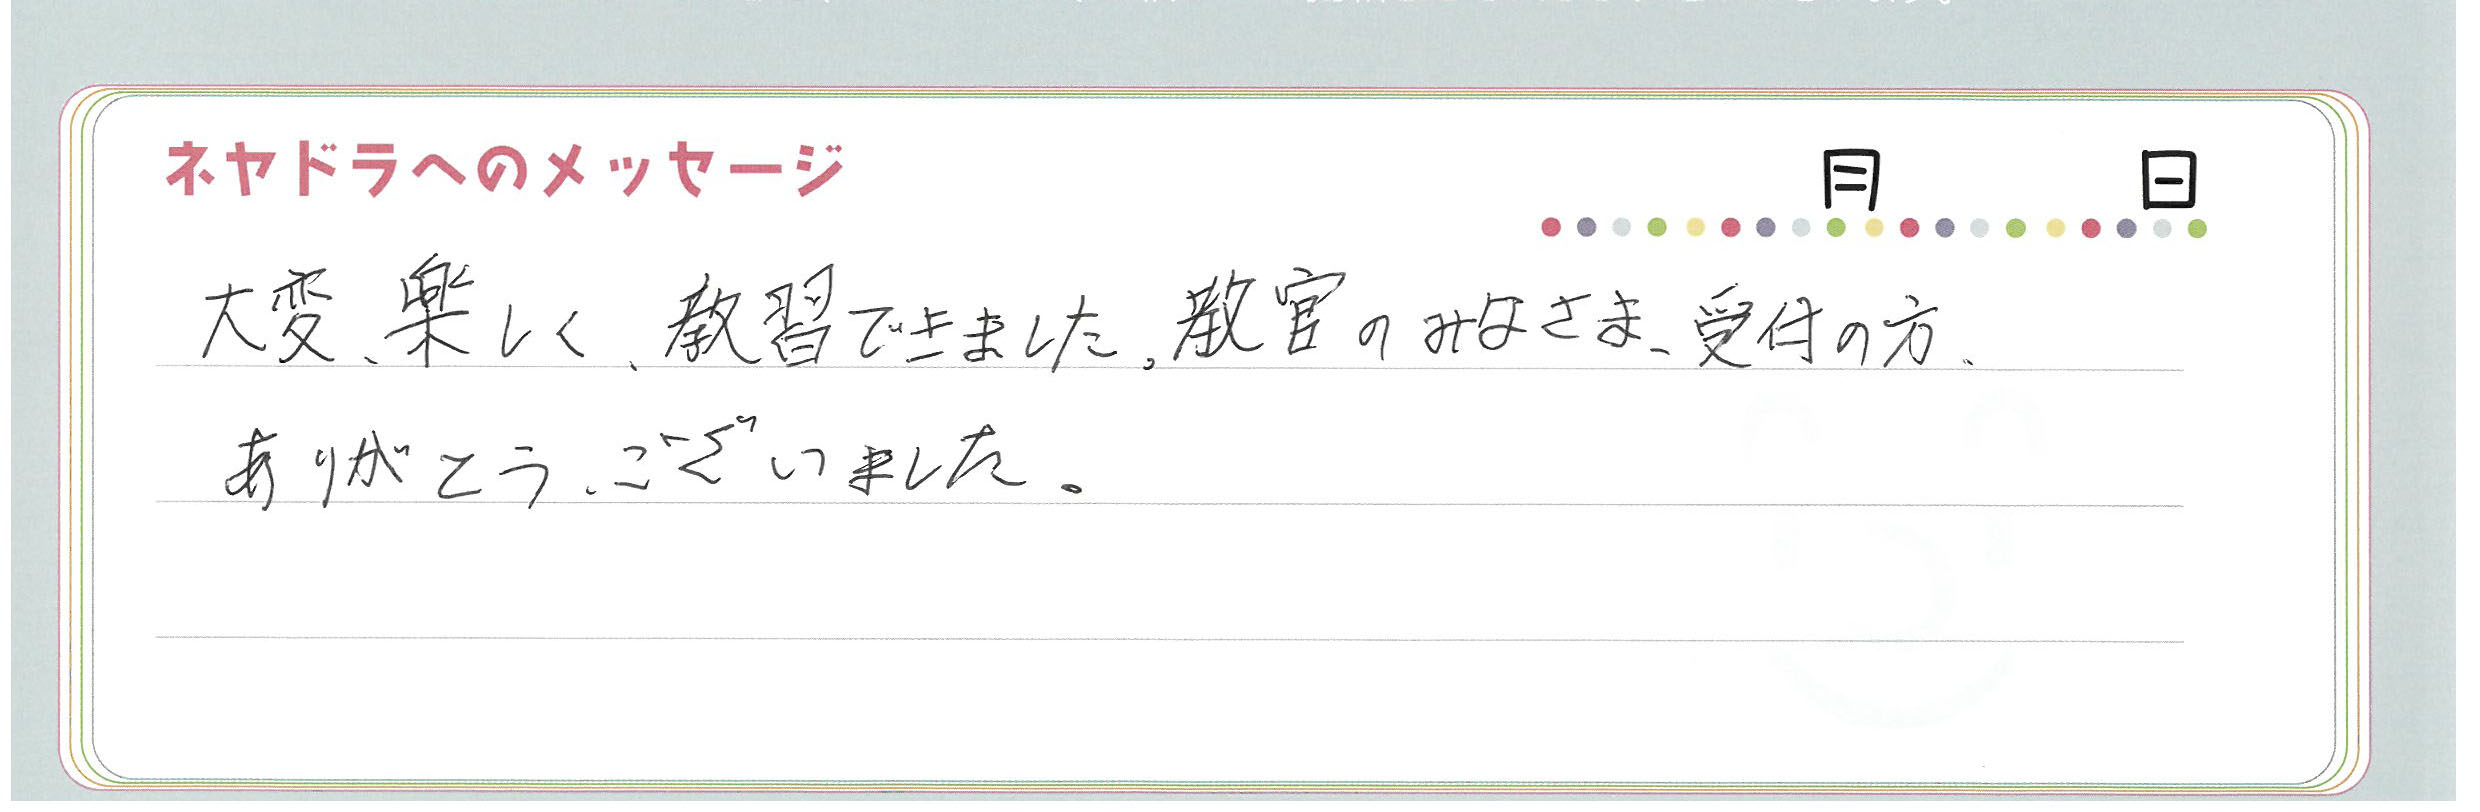 ネヤドラへのメッセージ
月 日
大変、楽しく、教習できました。教官のみなさま、受付の方、
ありがとう、ございました。